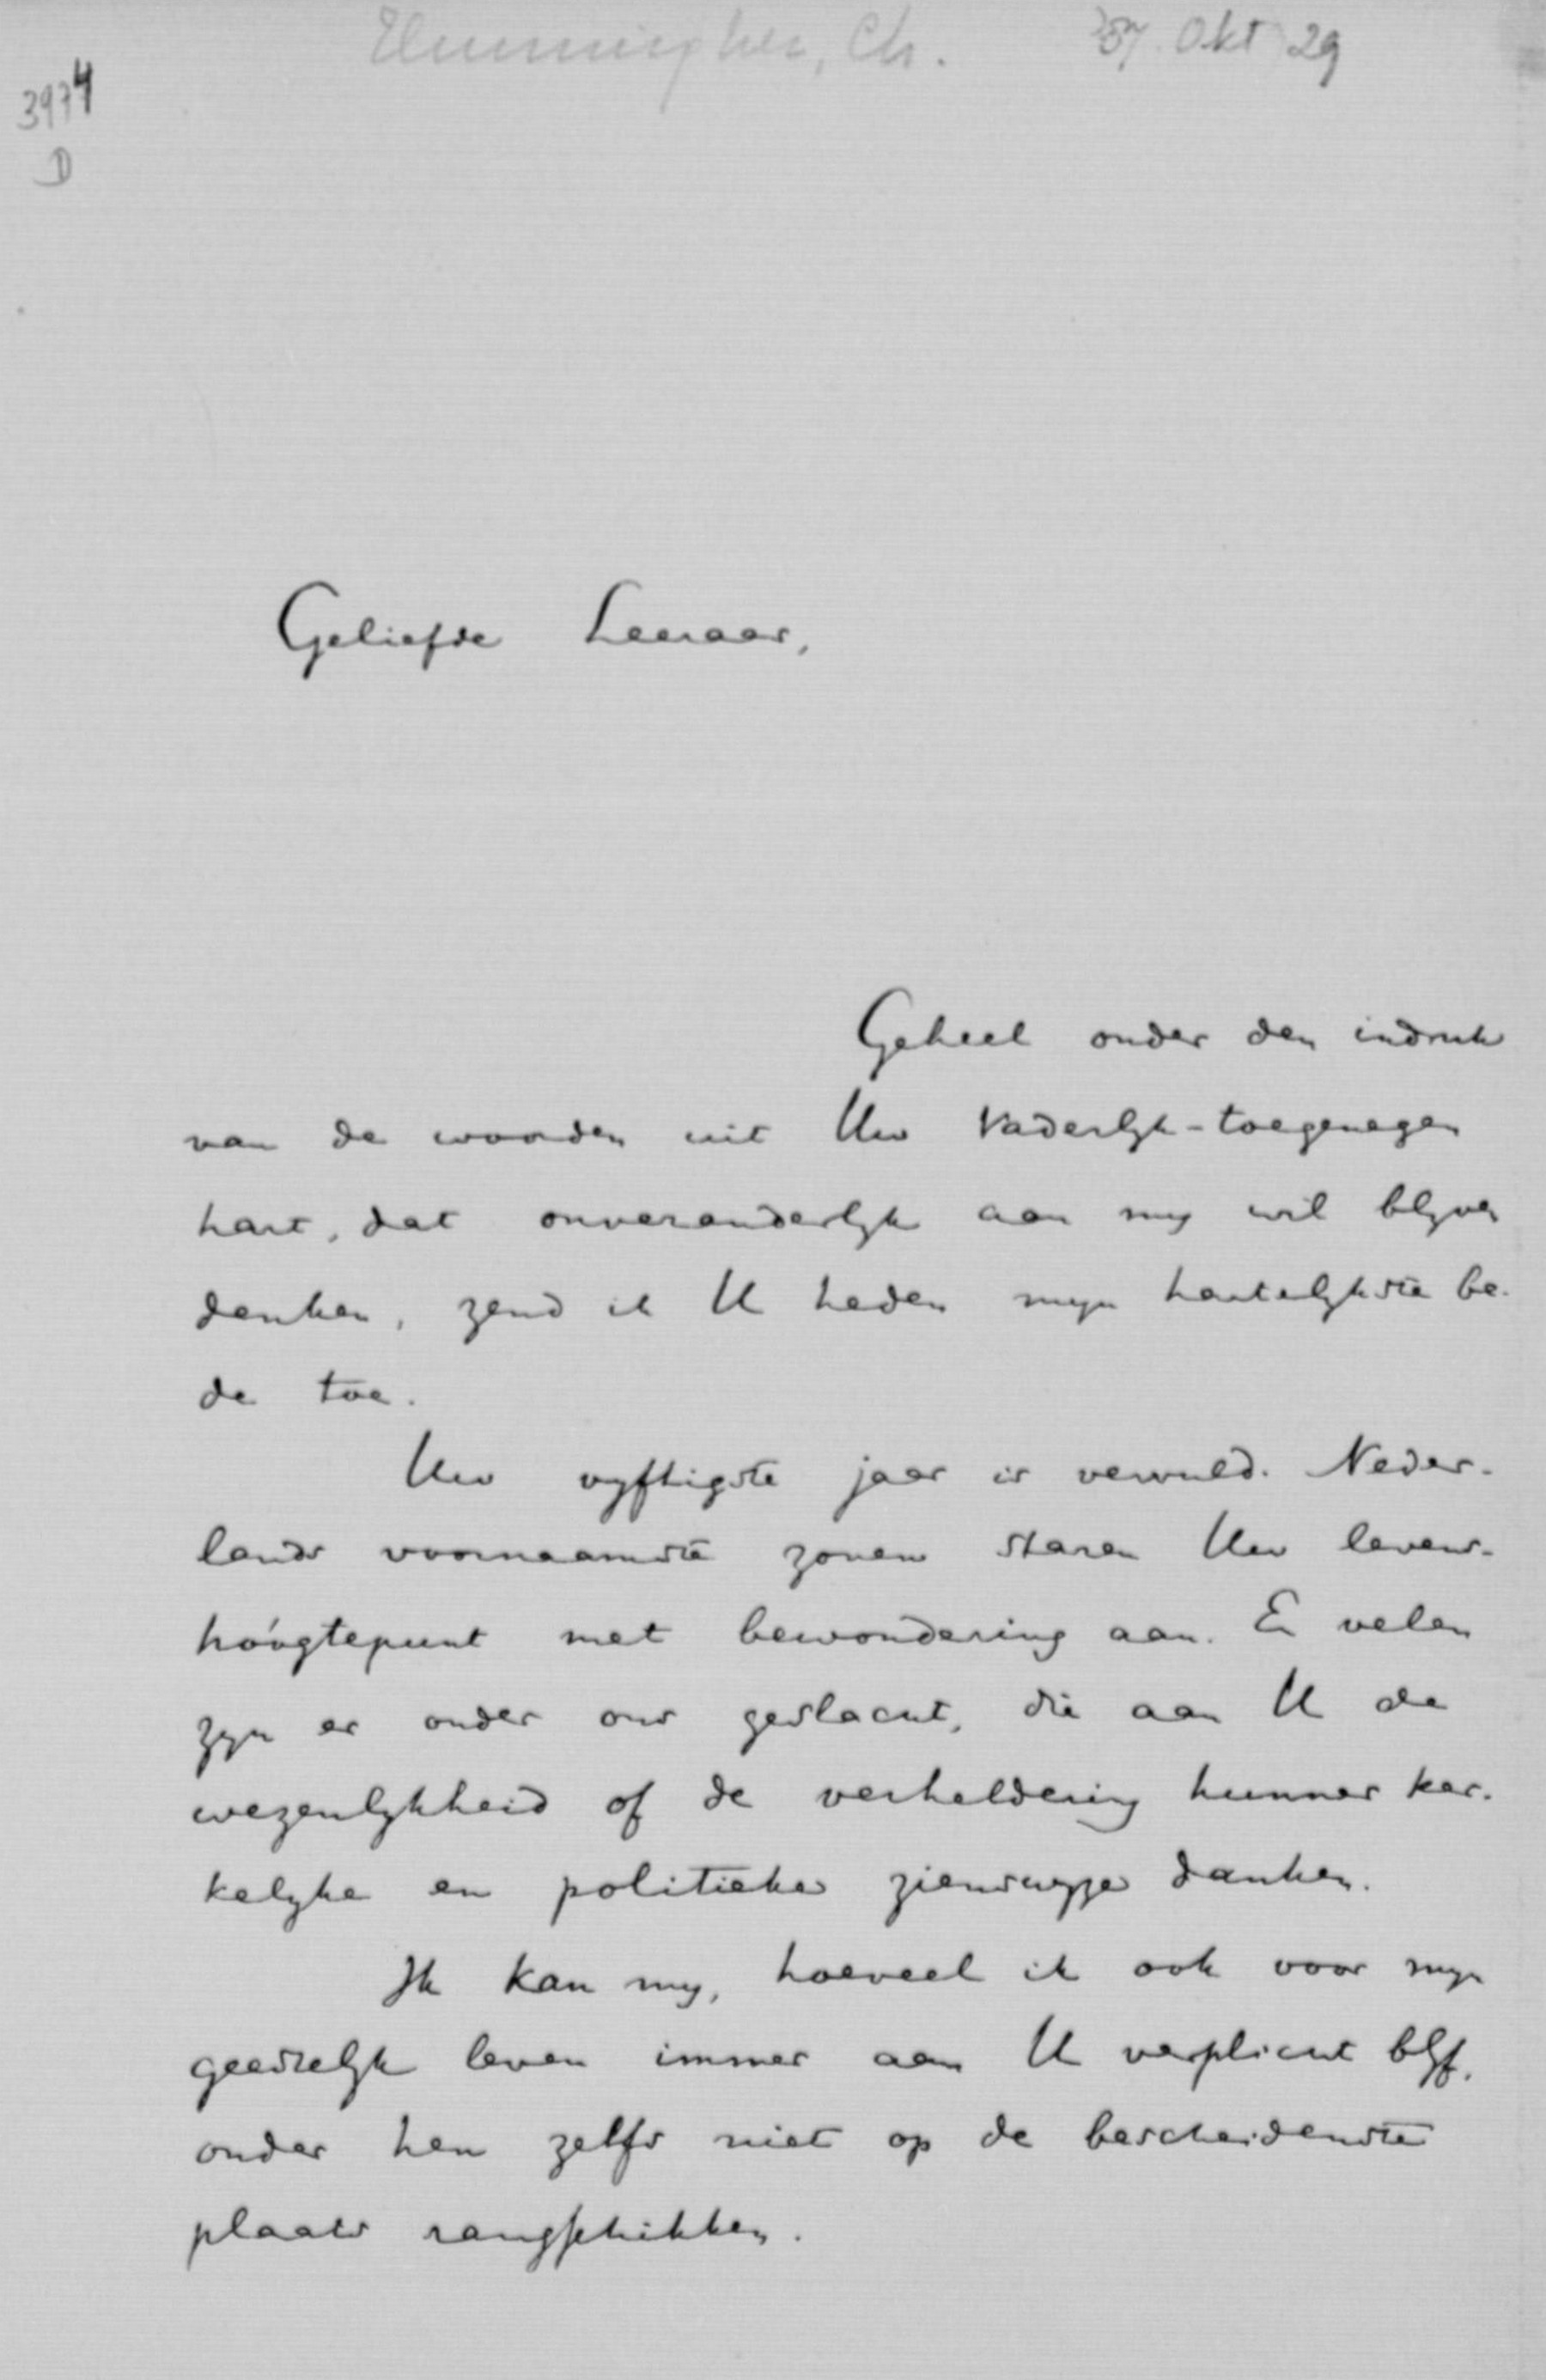 Ch. Okt 29
3974
D
Geliefde Leeraar,
Geheel onder den indruk
van de woorden uit Uw Vaderlyk-toegenegen
hart, dat onveranderlyk aan my wil blyven
denken, zend ik U heden myn hartelykste be-
de toe.
Uw vyftigste jaar is vervuld. Neder-
lands voornaamste zonen staren Uw levens-
hóogtepunt met bewondering aan. En velen
zyn er onder ons geslacht, die aan U de
wezenlykheid of de verheldering hunner ker-
kelyke en politieke zienswyze danken.
Ik kan my, hoeveel ik ook voor myn
geestelyk leven immer aan U verplicht blyf,
onder hen zelfs niet op de bescheidenste
plaats rangschikken.